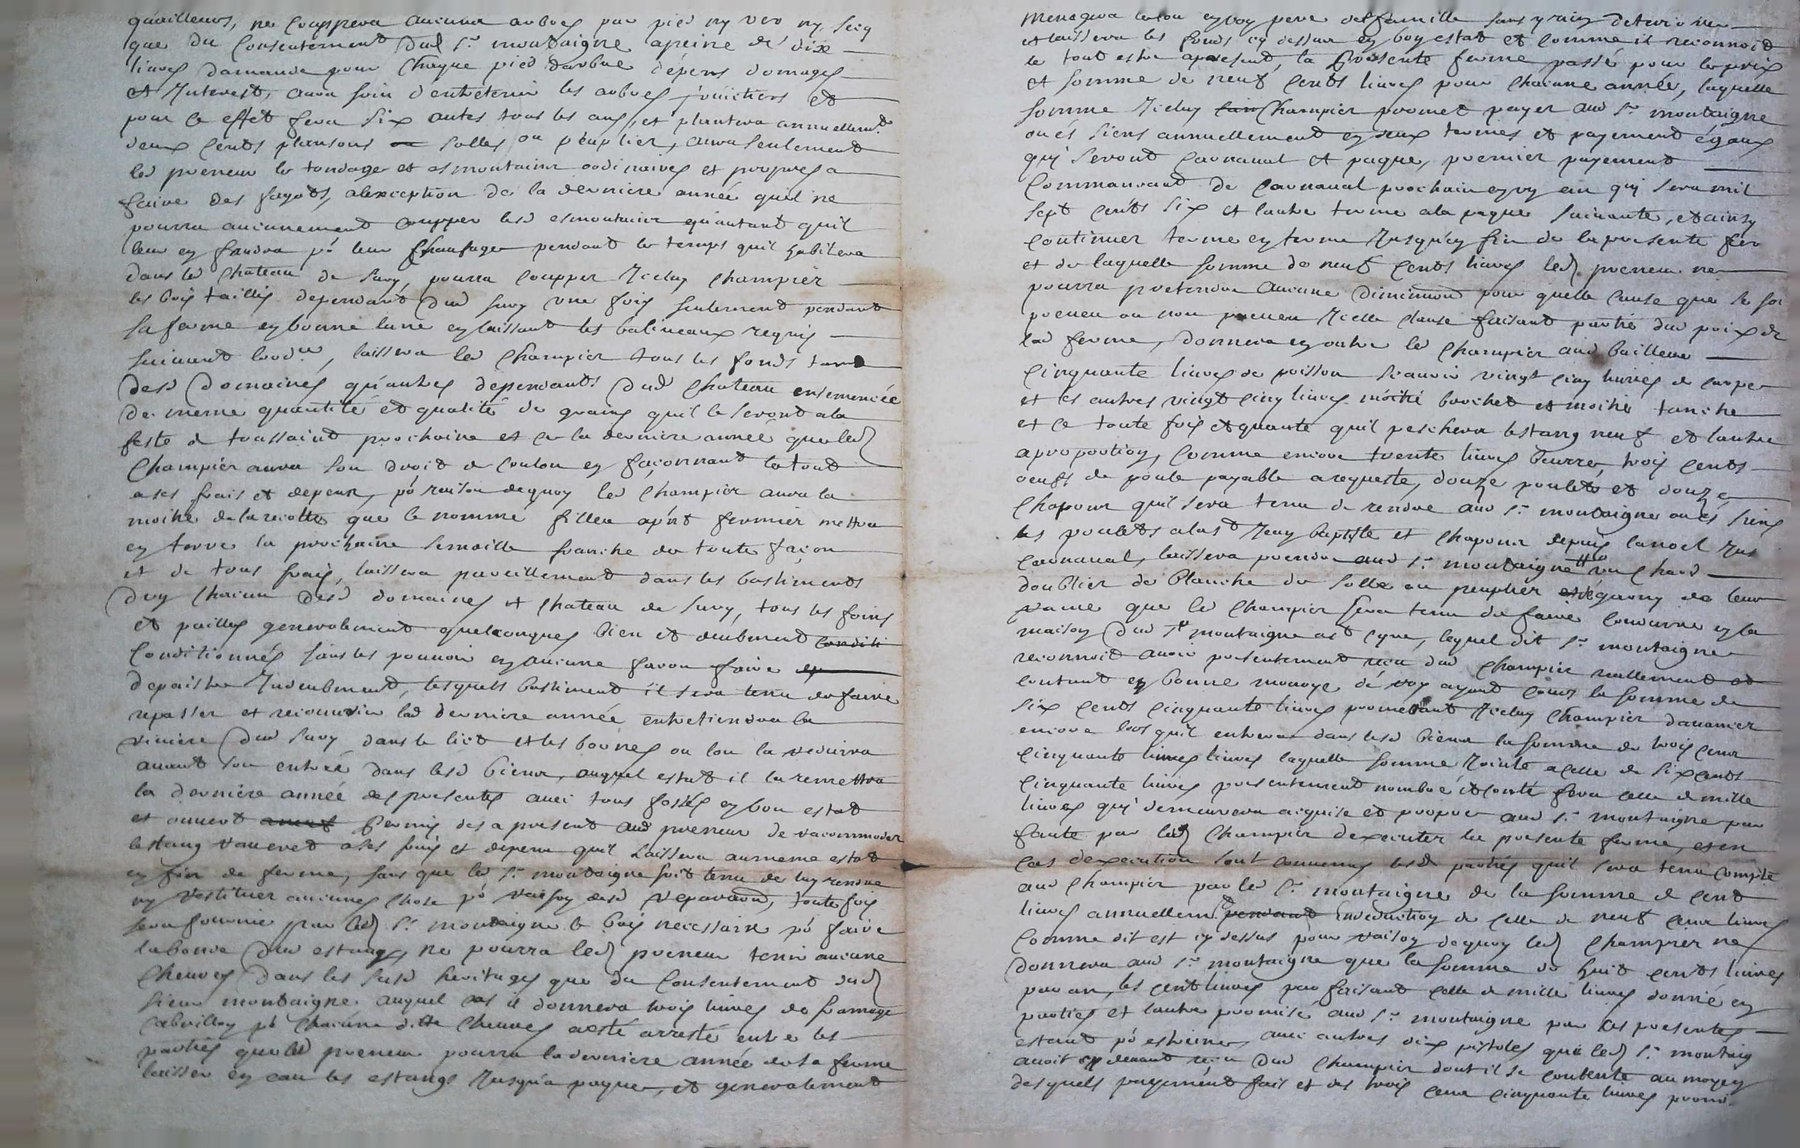 quailleurs, ne couppera aucuns arbres par pied ny ver ny secq
que du Consentement dud Sr montaigne apeine de dix
livres damande pour chaque pied darbre dépens domages
et Interest, aura soin d'entretenir les arbres fruictiers et
pour ce effet fera six antes tous les ans, et plantera annuellemt
deux cents plansons solles ou peuplier, aura seulement
led preneur le tondage et esmontaine ordinaires et propres a
faire des fagots, alexception de la derniere année quil ne
pourra aucunement coupper lesd esmontures quautant quil
leur en faudra pr leur chaufage pendant le temps quil habitera
dans led Chateau de Sury, pourra coupper Iceluy Champier
les bois taillis dependant dud Sury une fois seulement pendant
sa ferme en bonne lune en laissant les balineaux requis
suivant lordce, laissera led Champier tous les fonds tant
desd Domaines qu'autres dependants dud Chateau ensemencée
de meme quantité et qualité de grains quil le seront ala
feste de toussaint prochaine et ce la derniere année que led
Champier aura son droit de coulon en façonnant le tout
a ses frais et depens, pr raison dequoy led Champier aura la
moitié de la recolte que le nommé fillon aprt fermier mettra
en terre la prochaine semaille franche de toute façon
et de tous frais, laissera pareillement dans les bastiments
d'un chacun desd domaines et chateau de Sury, tous les foins
et pailles generalement quelconques bien et deubment
Conditionnés sans les pouvoir en aucune façon faire
depaistre Indeubment, lesquels bastiment il sera tenu de faire
repasser et recouvrir lad derniere année entretiendra la
riviere dud Sury dans le lict et les bornes ou lon la reduira
avant son entrée dans lesd biens, auquel estat il la remettra
la derniere année des presentes avec tous fossés en bon estat
et ouvert permis des a present aud preneur de racommoder
lestang a ses frais et depens quil laissera au meme estat
en fin de ferme, sans que led Sr montaigne soit tenu de luy rendre
ny restituer aucune chose pr raison desd reparaons, toute fois
sera fournie par led Sr montaigne le bois necessaire pr faire
labonde dud estang, ne pourra led preneur tenir aucune
Cheuvres dans les susd heritages que du Consentement dud
Sieur montaigne auquel cas il donnera trois livres de fromage
pr chacune ditte cheuvres aesté arresté entre les
parties que led preneur pourra la derniere année de sa ferme
laisser en eau les estangs Jusqua paques, et generalement
menagera le tou en bon pere de famille sans y rien deteriorer
et laissera les fonds cy dessus en bon estat et comme il reconnoit
le tout estre apresent, la presente ferme passée pour le prix
et somme de neuf cents livres pour chacune année, laquelle
somme Iceluy Champier promet payer aud Sr montaigne
ou és siens annuellement en deux termes et payement égaux
qui seront Carnaval et paque, premier payement
Commancant de Carnaval prochain en un an qui sera mil
sept cents six et lautre terme ala paque suivante, et ainsy
continuer terme en terme Jusqu'en fin de la presente fer
et de laquelle somme de neuf cents livres led preneur ne
pourra pretendre aucune diminuon pour quelle cause que se soi
preveu ou non preveu Icelle clause faisant partie du prix de
lad ferme, donnera en outre led Champier aud bailleur
Cinquante livres de poisson scavoir vingt cinq livres de carpe
et les autres vingt cinq livres moitié brochet et moitié tanche
et ce toute fois et quante quil peschera lestang neuf et lautre
aproportion, comme encore trente livres beurre, trois cents
oeufs de poule payable arequeste, douze poulets et douze
chapons quil sera tenu de rendre aud Sr montaigne ou és siens
les poulets ala st Jean baptiste et chapons depuis la noel Jus
carnaval, laissera prendre aud Sr montaigne un chard
doublier de planche de solle ou peuplier de leur
rame que led Champier sera tenu de faire conduire en la
maison dud Sr montaigne, lequel dit Sr montaigne
reconnoit avoir presentement receu dud Champier reallement et
contant en bonne monoye de roy ayant cours la somme de
six cents cinquante livres promettant Iceluy Champier davancer
encore lors quil entrera dans lesd biens la somme de trois cens
cinquante livres laquelle somme Jointe a celle de six cents
cinquante livres presentement nombré et conté fera celle de mille
livres qui demeurera acquise et propre aud Sr montaigne par
faute par led Champier dexecuter la presente ferme, et en
cas dexecution sont convenus lesd parties quil sera tenu compte
aud Champier par led Sr montaigne de la somme de cent
livres annuellemt en deduction de celle de neuf cens livres
comme dit est cy dessus pour raison dequoy led Champier ne
donnera aud Sr montaigne que la somme de huit cents livres
par an, les cent livres parfaisant celle de mille livres donné en
parties et lautre promise aud Sr montaigne par ces presentes
estant pr estreines avec autres dix pistoles que led Sr montaig
avoit cy devant receu dud Champier dont il se contente au moyen
desquels payement fait et des trois cens cinquante livres promi